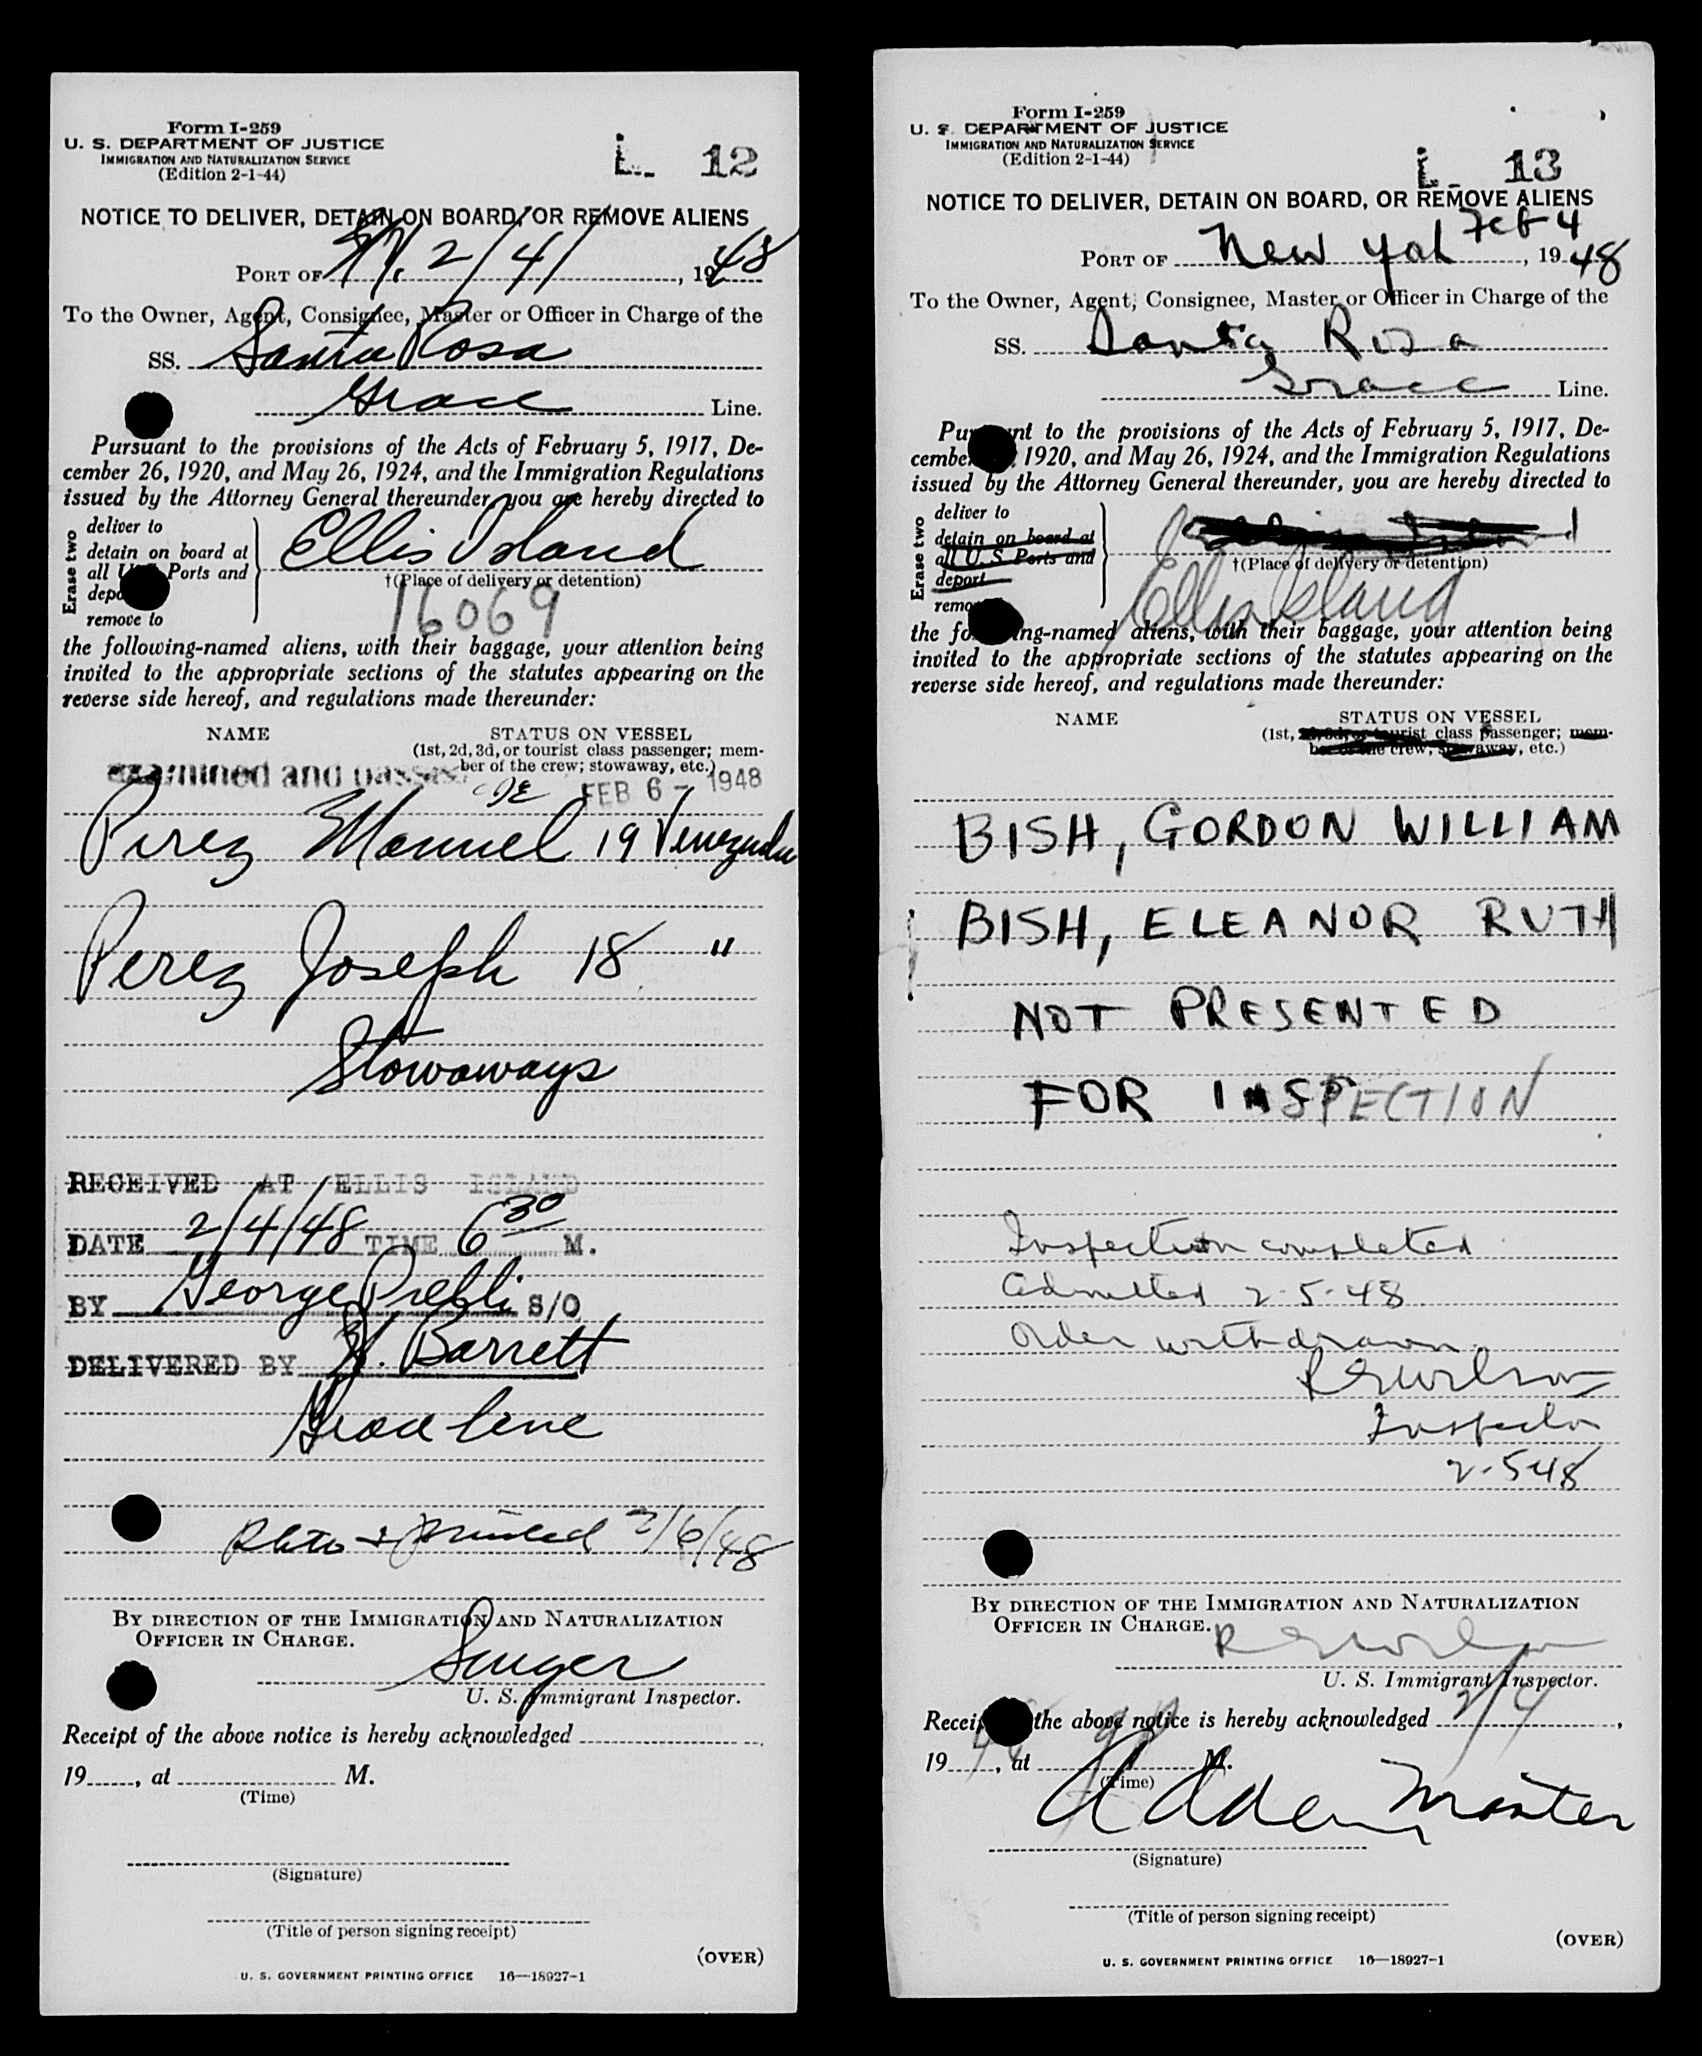 Form I-259
U. S. DEPARTMENT OF JUSTICE
IMMIGRATION AND NATURALIZATION SERVICE
(Edition 2-1-44)
L- 12
NOTICE TO DELIVER, DETAIN ON BOARD, OR REMOVE ALIENS
PORT OF N.Y. 2/4/, 1948
To the Owner, Agent, Consignee, Master or Officer in Charge of the
SS. Santa Rosa
Grace Line.
Pursuant to the provisions of the Acts of February 5, 1917, De-
cember 26, 1920, and May 26, 1924, and the Immigration Regulations
issued by the Attorney General thereunder, you are hereby directed to
Erase two
deliver to
detain on board at
all U. S. Ports and
depo
remove to
Ellis Island
†(Place of delivery or detention)
16069
the following-named aliens, with their baggage, your attention being
invited to the appropriate sections of the statutes appearing on the
reverse side hereof, and regulations made thereunder:
NAME STATUS ON VESSEL
(1st, 2d, 3d, or tourist class passenger; mem-
ber of the crew; stowaway, etc.)
examined and passed
FEB 6 - 1948
Perez Manuel 19 Venezuela
Perez Joseph 18 "
Stowaways
RECEIVED AT ELLIS ISLAND
DATE 2/4/48 TIME 6 30 M.
BY George S/O
DELIVERED BY H. Barrett
Grace Line
Photo & Printed 2/6/48
BY DIRECTION OF THE IMMIGRATION AND NATURALIZATION
OFFICER IN CHARGE.
Singer
U. S. Immigrant Inspector.
Receipt of the above notice is hereby acknowledged
19......, at M.
(Time)
(Signature)
(Title of person signing receipt)
(OVER)
U. S. GOVERNMENT PRINTING OFFICE 16—18927-1
Form I-259
U. S. DEPARTMENT OF JUSTICE
IMMIGRATION AND NATURALIZATION SERVICE
(Edition 2-1-44)
L- 13
NOTICE TO DELIVER, DETAIN ON BOARD, OR REMOVE ALIENS
PORT OF New York Feb 4, 1948
To the Owner, Agent, Consignee, Master or Officer in Charge of the
SS. Santa Rosa
Grace Line.
Pursuant to the provisions of the Acts of February 5, 1917, De-
cember 1920, and May 26, 1924, and the Immigration Regulations
issued by the Attorney General thereunder, you are hereby directed to
Erase two
deliver to
detain on board at
all U. S. Ports and
deport
remo
†(Place of delivery or detention)
Ellis Island
the following-named aliens, with their baggage, your attention being
invited to the appropriate sections of the statutes appearing on the
reverse side hereof, and regulations made thereunder:
NAME STATUS ON VESSEL
(1st, 2d, 3d, or tourist class passenger; mem-
ber of the crew; stowaway, etc.)
BISH, GORDON WILLIAM
BISH, ELEANOR RUTH
NOT PRESENTED
FOR INSPECTION
Inspection completed
Admitted 2-5-48
Order withdrawn
R G Wilson
Inspector
2-5-48
BY DIRECTION OF THE IMMIGRATION AND NATURALIZATION
OFFICER IN CHARGE.
R G Wilson
U. S. Immigrant Inspector.
Receipt the above notice is hereby acknowledged 2/4,
1948, at M.
(Time)
Master
(Signature)
(Title of person signing receipt)
(OVER)
U. S. GOVERNMENT PRINTING OFFICE 16—18927-1